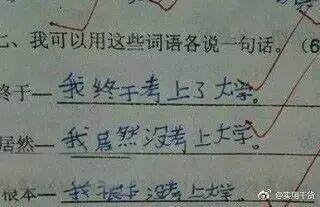 七、我可以用这些词语各说一句话。(6
终于—我终于考上了大学。
居然—我居然没考上大学。
根本—我根本没考上大学。
@实用干货